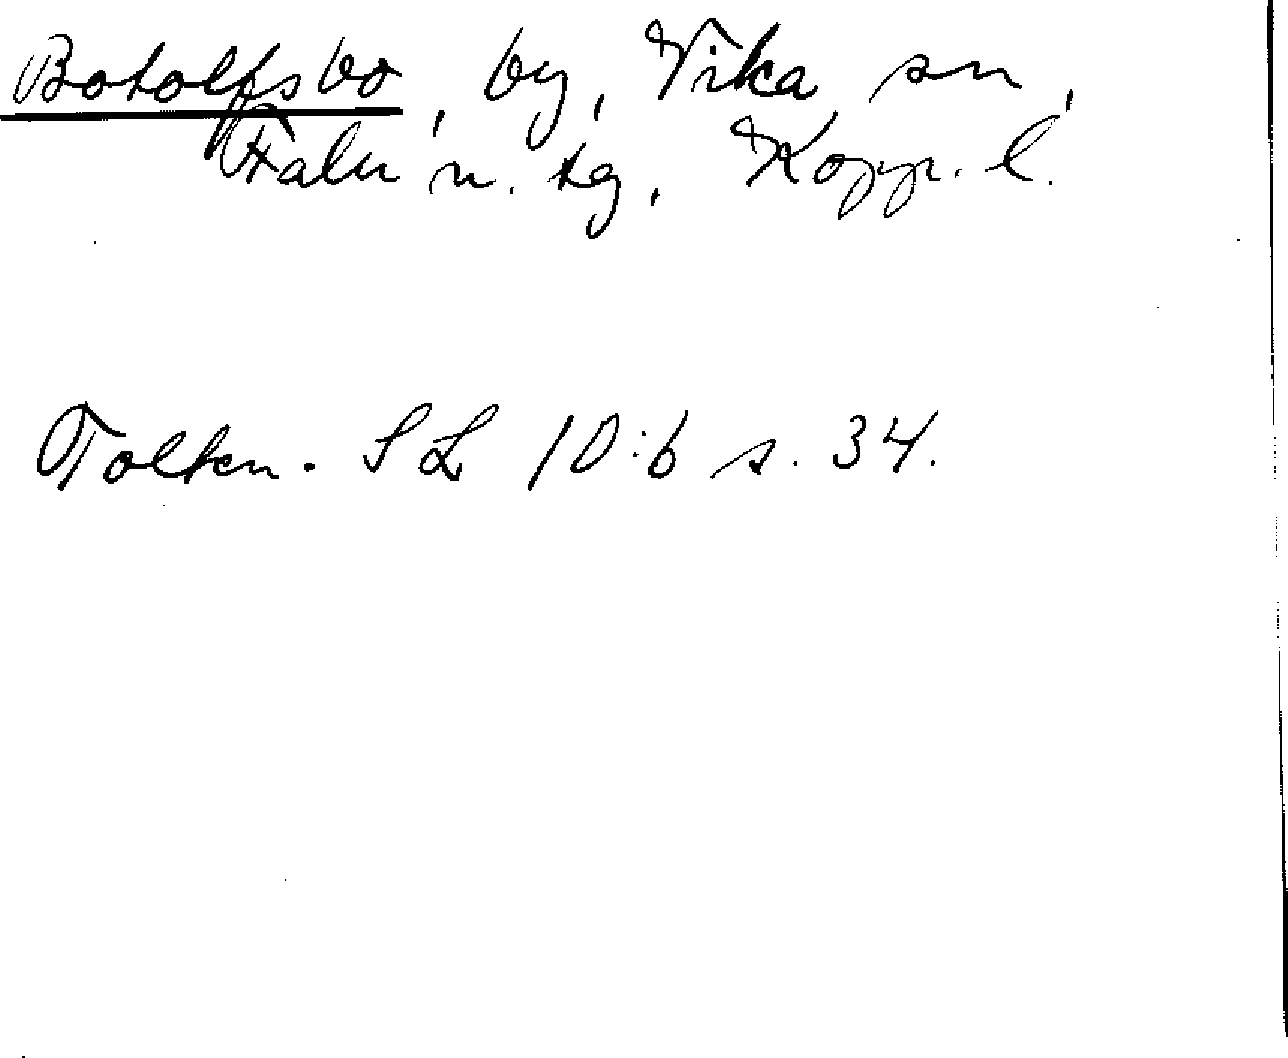 Botolfsbo, by, Vika sn,
Falu n. tg, Kopp. l.
Tolken. SL 10:6 s. 34.